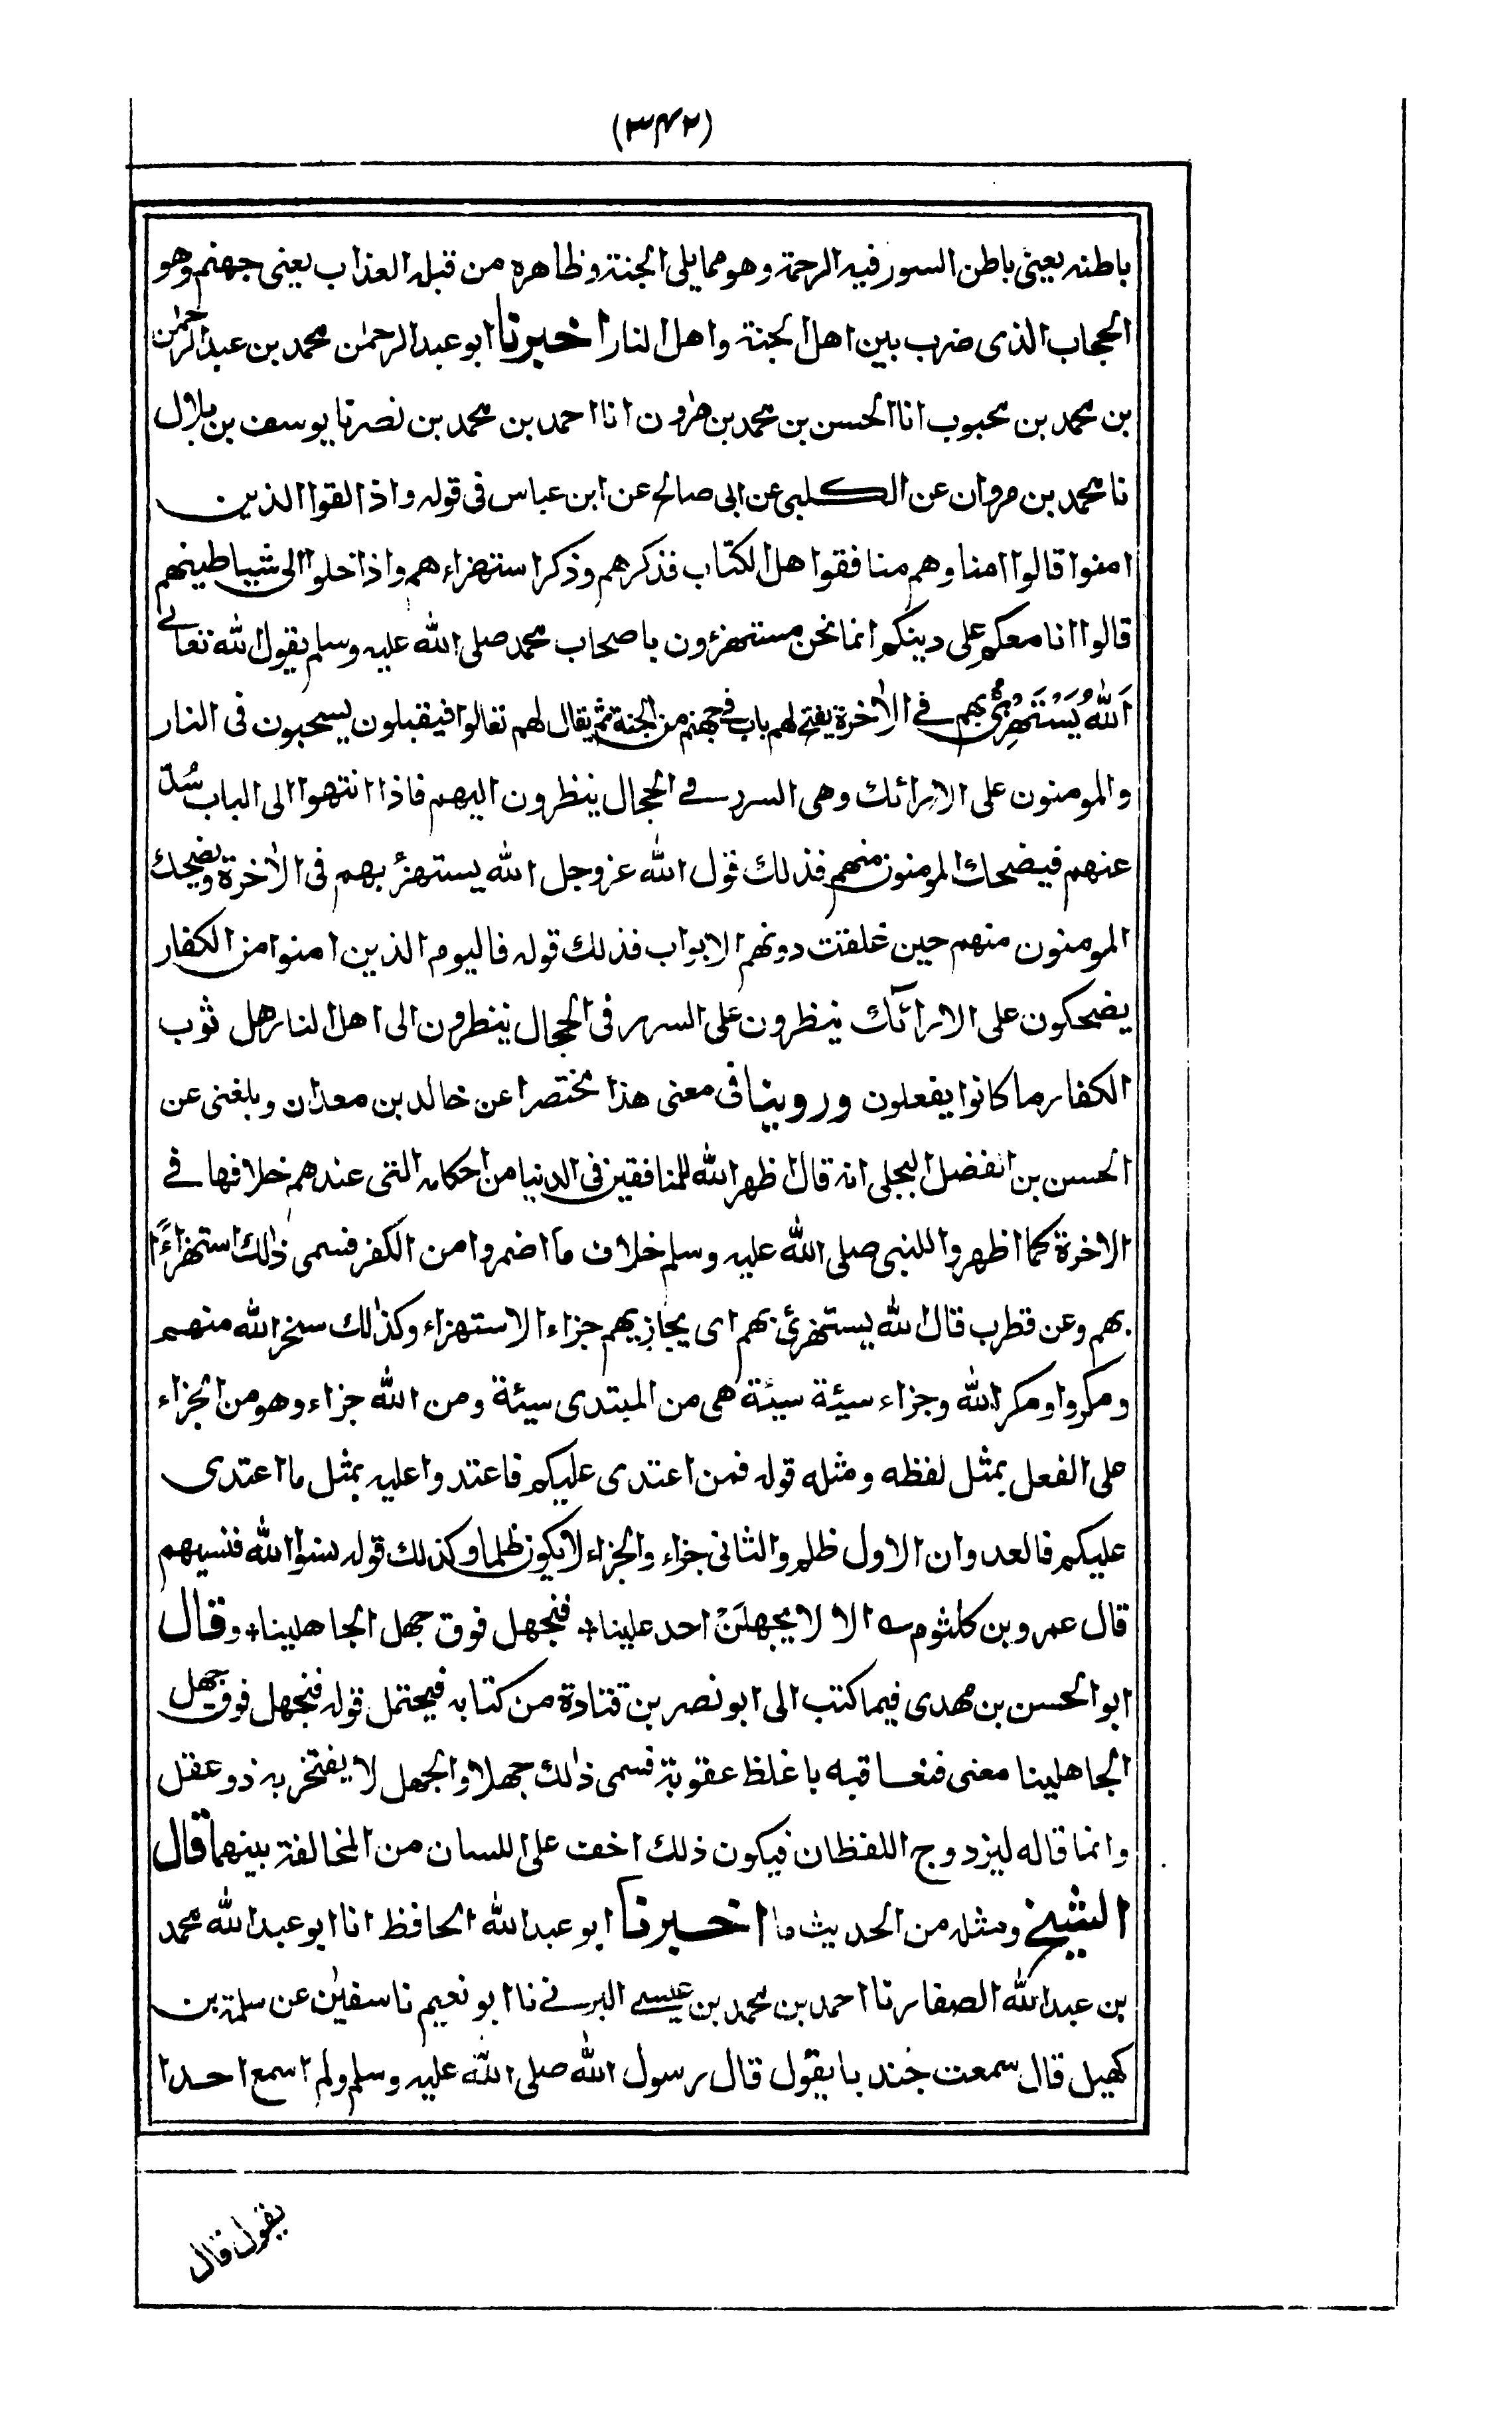 (۳۴۲)
باطنه يعنى باطن السور فيه الرحمة وهو مما يلى الجنة وظاهره من قبله العذاب يعنى جهنم وهو
الحجاب الذى ضرب بين اهل الجنة واهل النار اخبرنا ابو عبد الرحمٰن محمد بن عبد الرحمٰن
بن محمد بن محبوب انا الحسن بن محمد بن هٰرون انا احمد بن محمد بن نصر نا يوسف بن بلال
نا محمد بن مروان عن الكلبى عن ابى صالح عن ابن عباس فى قوله واذا لقوا الذين
امنوا قالوا امنا وهم منافقوا هل الكتاب فذكرهم وذكر استهزاءهم واذا خلوا الى شياطينهم
قالوا انا معكم على دينكم انما نحن مستهزؤن باصحاب محمد صلى الله عليه وسلم يقول الله تعالے
اَللّٰهُ يَسْتَهْزِئُ بهم فے الاٰخرة يفتح لهم باب فے جهنم من الجنة ثم يقال لهم تعالوا فيقبلون يسحبون فى النار
والمومنون على الارائك وهى السرر فے الحجال ينظرون اليهم فاذا انتهوا الى الباب سُدّ
عنهم فيضحك المومنون منهم فذلك قول الله عزوجل الله يستهزئ بهم فى الاٰخرة ويضحك
المومنون منهم حين غلقت دونهم الابواب فذلك قوله فاليوم الذين امنوا من الكفار
يضحكون على الارآئك ينظرون على السرر فى الحجال ينظرون الى اهل النار هل ثوب
الكفار ما كانوا يفعلون وروينا فى معنى هذا مختصرا عن خالد بن معدان وبلغنى عن
الحسن بن الفضل البجلى انه قال اظهر الله للمنافقين فى الدنيا من احكامه التى عندهم خلافها فے
الاخرة كما اظهروا للنبى صلى الله عليه وسلم خلاف ما اضمروا من الكفر فسمى ذٰلك استهزاءً
بهم وعن قطرب قال الله يستهزئ بهم اى يجازيهم جزاء الاستهزاء وكذالك سخر الله منهم
ومكروا ومكر الله وجزاء سيئة سيئة هى من المبتدى سيئة ومن الله جزاء وهو من الجزاء
على الفعل بمثل لفظه ومثله قوله فمن اعتدى عليكم فاعتدوا عليه بمثل ما اعتدى
عليكم فالعدوان الاول ظلم والثانى جزاء والجزاء لا يكون ظلما وكذلك قوله نسوا الله فنسيهم
قال عمرو بن كلثوم ؎ الا لا يجهلَنْ احد علينا * فنجهل فوق جهل الجاهلينا * وقال
ابو الحسن بن مهدى فيما كتب الى ابو نصر بن قتادة من كتابه فيحتمل قوله فنجهل فوق جهل
الجاهلينا معنى فنعاقبه باغلظ عقوبة فسمى ذٰلك جهلا والجهل لا يفتخر به ذو عقل
وانما قاله ليزدوج اللفظان فيكون ذلك اخف على اللسان من المخالفة بينهما قال
الشيخ ومثله من الحديث ما اخبرنا ابو عبد الله الحافظ انا ابو عبد الله محمد
بن عبد الله الصفار نا احمد بن محمد بن عيسى البرتے نا ابو نعيم نا سفيٰن عن سلمة بن
كهيل قال سمعت جندبا يقول قال رسول الله صلى الله عليه وسلم ولم اسمع احدا
يقول قال